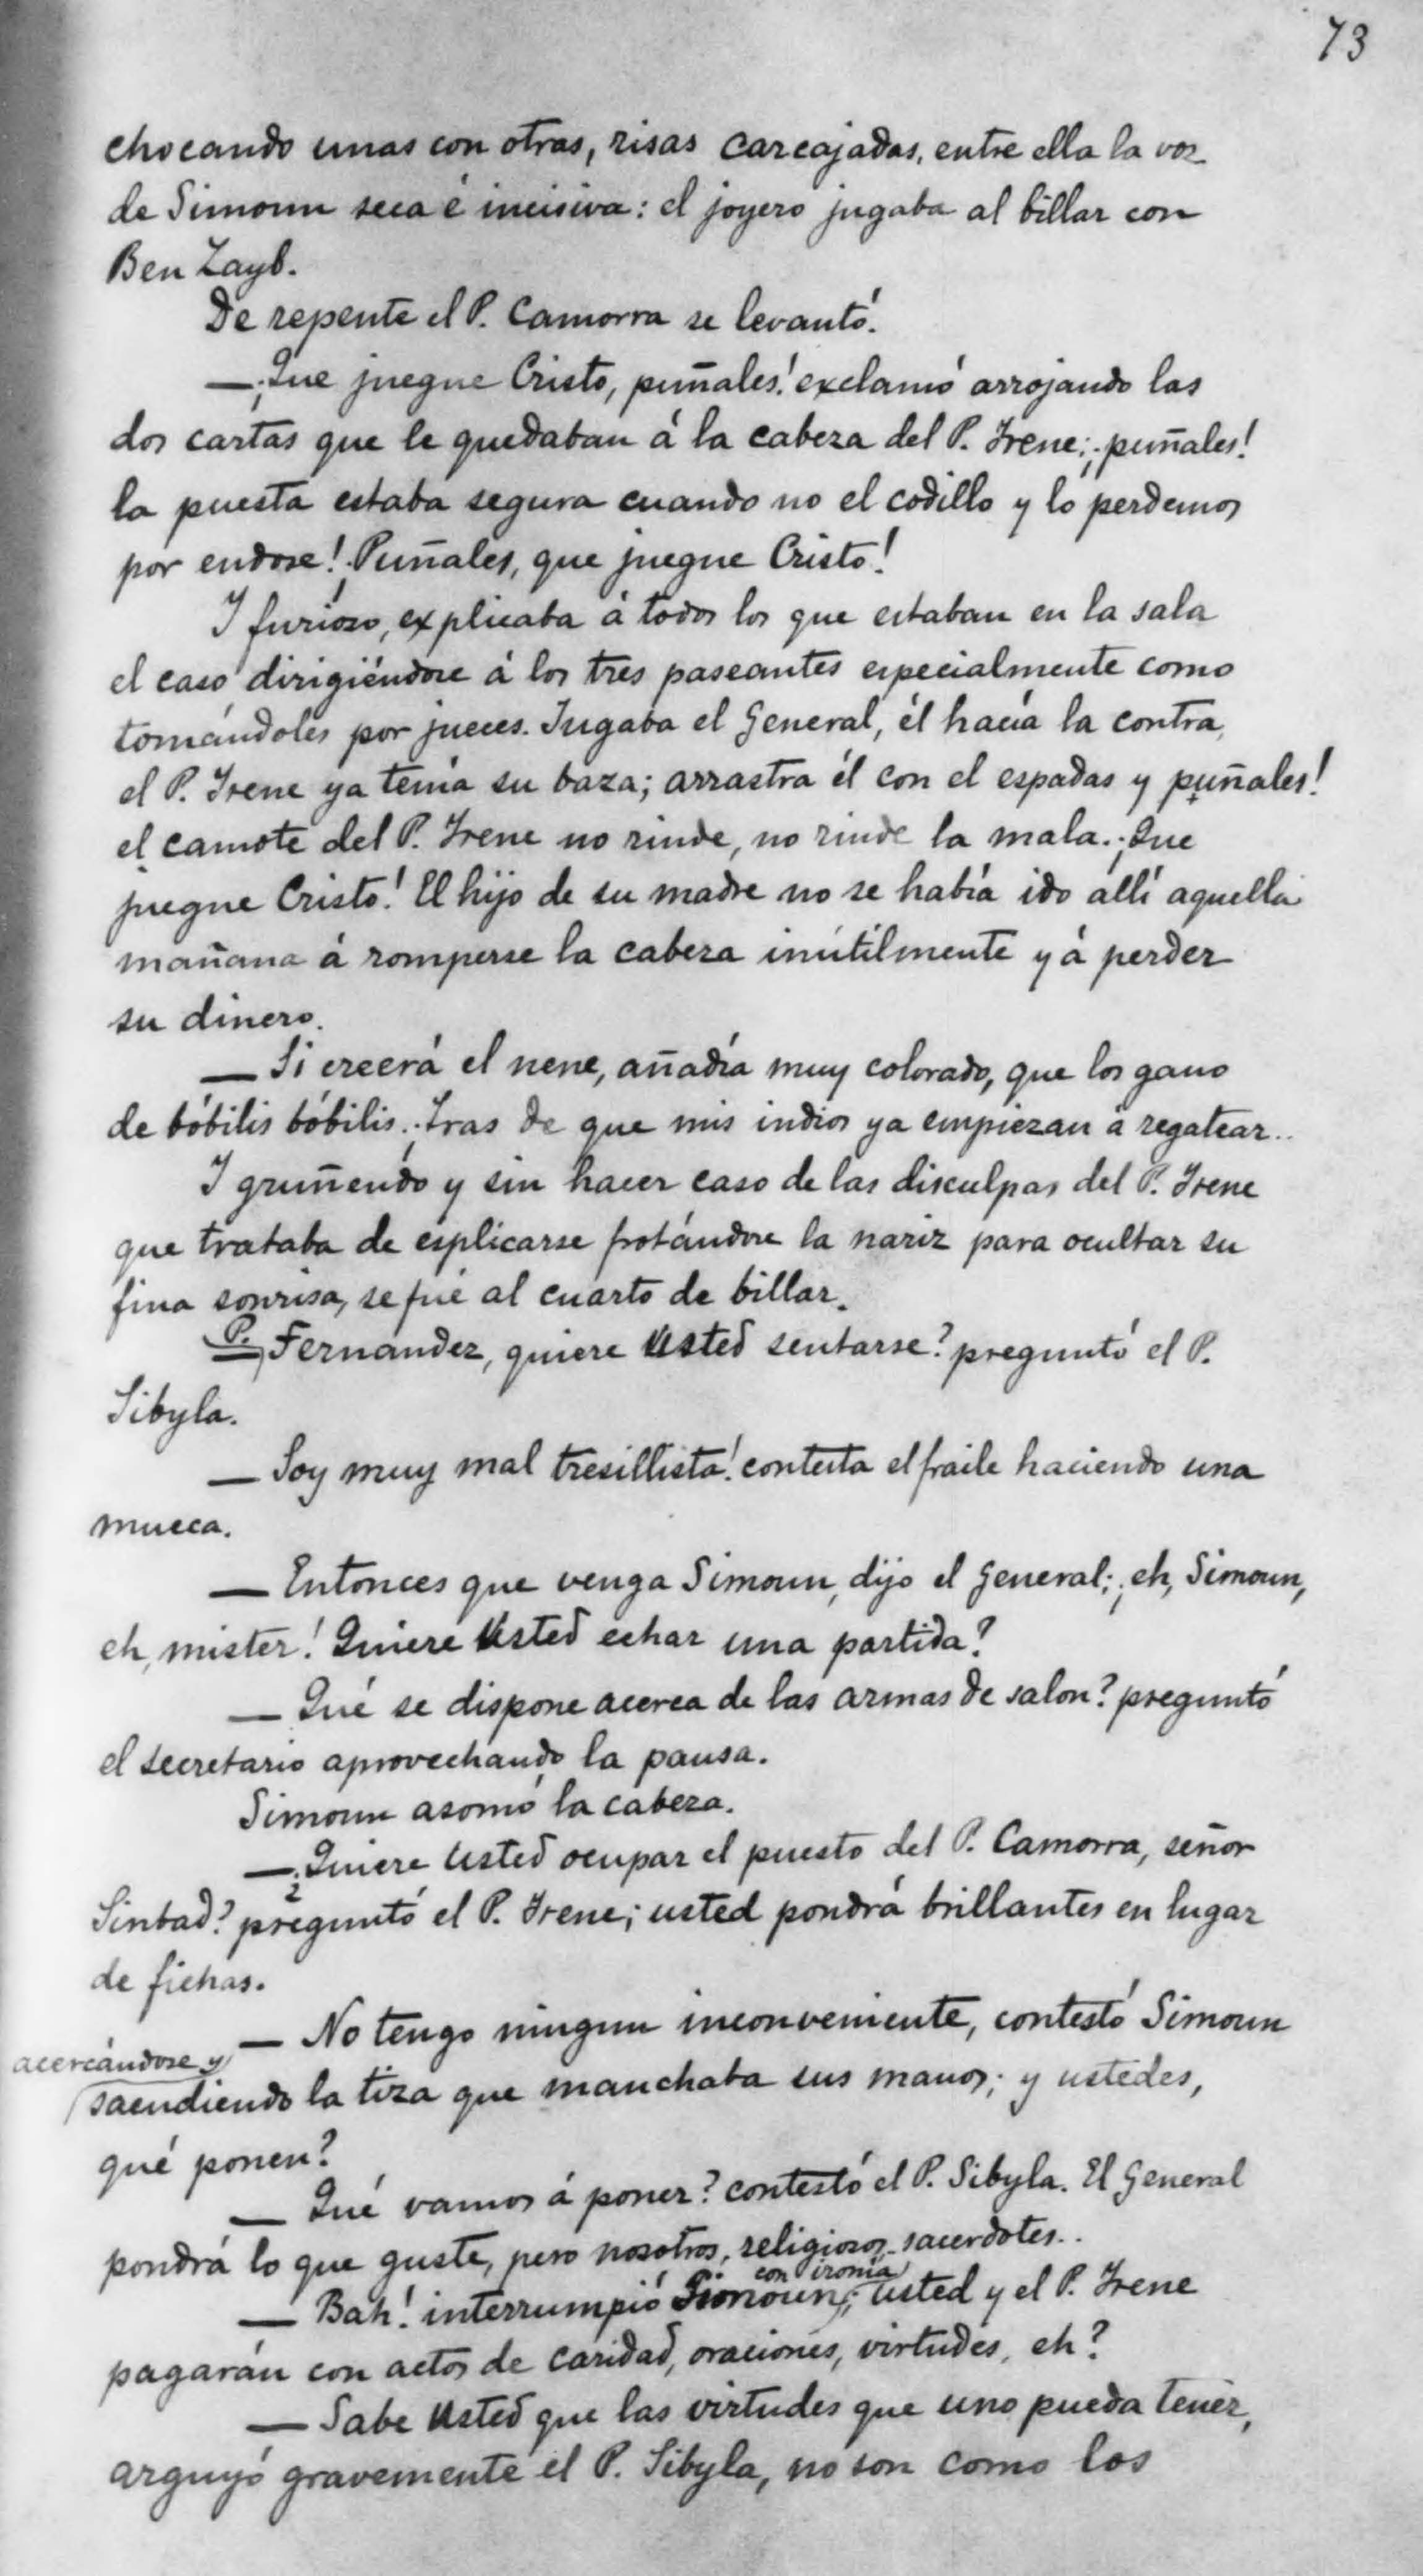 73
chocando unas con otras, risas carcajadas, entre ella la voz
de Simoun seca é incisiva: el joyero jugaba al billar con
Ben Zayb.
De repente el P. Camorra se levantó.
—¡Que juegue Cristo, puñales! exclamó arrojando las
dos cartas que le quedaban á la cabeza del P. Irene; ¡puñales!
la puesta estaba segura cuando no el codillo y lo perdemos
por endose! ¡Puñales, que juegue Cristo!
Y furioso, explicaba á todos los que estaban en la sala
el caso dirigiéndose á los tres paseantes especialmente como
tomándoles por jueces. Jugaba el General, él hacía la contra,
el P. Irene ya tenía su baza; arrastra él con el espadas y ¡puñales!
el camote del P. Irene no rinde, no rinde la mala. ¡Que
juegue Cristo! El hijo de su madre no se había ido allí aquella
mañana á romperse la cabeza inútilmente y á perder
su dinero.
— Si creerá el nene, añadía muy colorado, que los gano
de bóbilis bóbilis. ¡Tras de que mis indios ya empiezan á regatear..
Y gruñendo y sin hacer caso de las disculpas del P. Irene
que trataba de esplicarse frotándose la nariz para ocultar su
fina sonrisa, se fué al cuarto de billar.
— P. Fernandez, quiere Usted sentarse? preguntó el P.
Sibyla.
— Soy muy mal tresillista! contesta el fraile haciendo una
mueca.
— Entonces que venga Simoun, dijo el General; ¡eh, Simoun,
eh, mister! Quiere Usted echar una partida?
— Qué se dispone acerca de las armas de salon? preguntó
el secretario aprovechando la pausa.
Simoun asomó la cabeza.
— ¿Quiere Usted ocupar el puesto del P. Camorra, señor
Sinbad? preguntó el P. Irene; usted pondrá brillantes en lugar
de fichas.
— No tengo ningun inconveniente, contestó Simoun
acercándose y
sacudiendo la tiza que manchaba sus manos; y ustedes,
qué ponen?
— Qué vamos á poner? contestó el P. Sibyla. El General
pondrá lo que guste, pero nosotros, religiosos, sacerdotes..
con ironía
— Bah! interrumpió Simoun; usted y el P. Irene
pagarán con actos de caridad, oraciones, virtudes, eh?
— Sabe Usted que las virtudes que uno pueda tener,
arguyó gravemente el P. Sibyla, no son como los